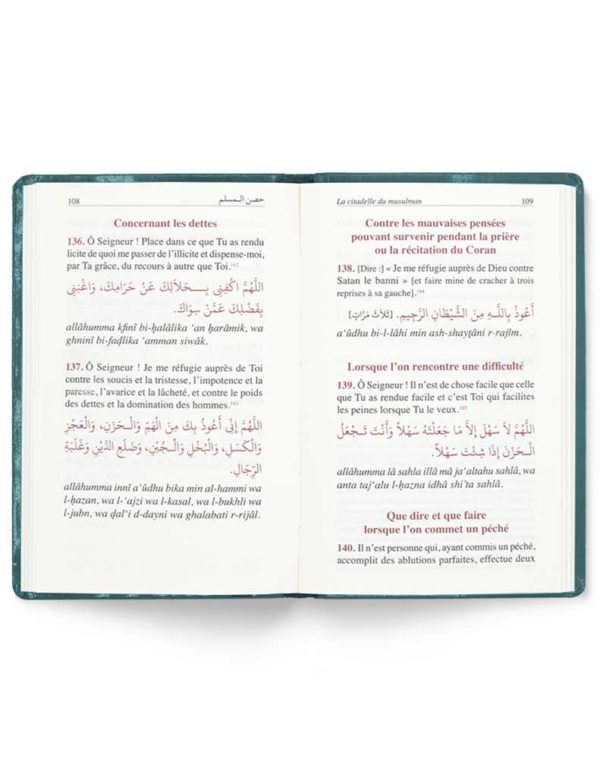 108 حصن المسلم
Concernant les dettes
136. Ô Seigneur ! Place dans ce que Tu as rendu
licite de quoi me passer de l'illicite et dispense-moi,
par Ta grâce, du recours à autre que Toi.¹⁶²
اللَّهُمَّ اكْفِنِي بِحَلَالِكَ عَنْ حَرَامِكَ، وَاغْنِنِي
بِفَضْلِكَ عَمَّنْ سِوَاكَ.
allâhumma kfnî bi-ḥalâlika ‘an ḥarâmik, wa
ghninî bi-faḍlika ‘amman siwâk.
137. Ô Seigneur ! Je me réfugie auprès de Toi
contre les soucis et la tristesse, l'impotence et la
paresse, l'avarice et la lâcheté, et contre le poids
des dettes et la domination des hommes.¹⁶³
اللَّهُمَّ إِنِّي أَعُوذُ بِكَ مِنَ الْهَمِّ وَالْحَزَنِ، وَالْعَجْزِ
وَالْكَسَلِ، وَالْبُخْلِ وَالْجُبْنِ، وَضَلَعِ الدَّيْنِ وَغَلَبَةِ
الرِّجَالِ.
allâhumma innî a‘ûdhu bika min al-hammi wa
l-ḥazan, wa l-‘ajzi wa l-kasal, wa l-bukhli wa
l-jubn, wa ḍal‘i d-dayni wa ghalabati r-rijâl.
La citadelle du musulman 109
Contre les mauvaises pensées
pouvant survenir pendant la prière
ou la récitation du Coran
138. [Dire :] « Je me réfugie auprès de Dieu contre
Satan le banni » [et faire mine de cracher à trois
reprises à sa gauche].¹⁶⁴
أَعُوذُ بِاللَّهِ مِنَ الشَّيْطَانِ الرَّجِيمِ. [ثَلَاثَ مَرَّاتٍ]
a‘ûdhu bi-l-lâhi min ash-shayṭâni r-rajîm.
Lorsque l'on rencontre une difficulté
139. Ô Seigneur ! Il n'est de chose facile que celle
que Tu as rendue facile et c'est Toi qui facilites
les peines lorsque Tu le veux.¹⁶⁵
اللَّهُمَّ لَا سَهْلَ إِلَّا مَا جَعَلْتَهُ سَهْلًا وَأَنْتَ تَجْعَلُ
الْحَزْنَ إِذَا شِئْتَ سَهْلًا.
allâhumma lâ sahla illâ mâ ja‘altahu sahlâ, wa
anta taj‘alu l-ḥazna idhâ shi'ta sahlâ.
Que dire et que faire
lorsque l'on commet un péché
140. Il n'est personne qui, ayant commis un péché,
accomplit des ablutions parfaites, effectue deux